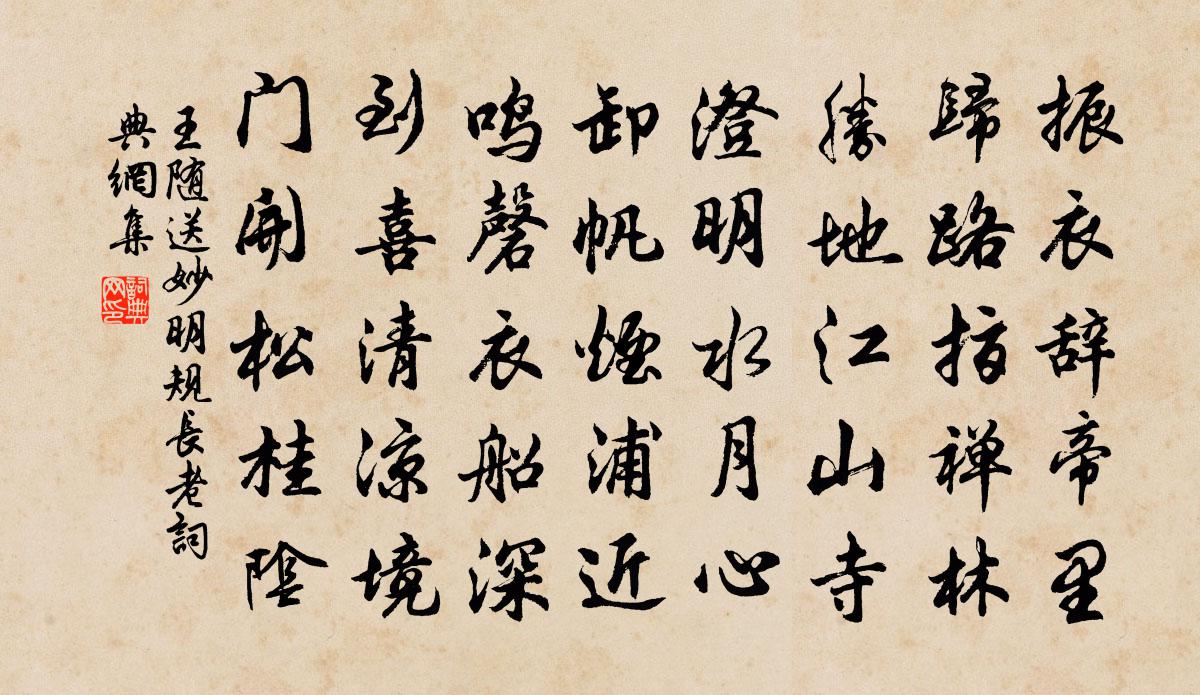 振衣辞帝里
歸路指禅林
勝地江山寺
澄明水月心
卸帆煙浦近
鸣磬衣船深
到喜清凉境
门開松桂陰
王随送妙明規長老詞
典網集
詞典
网印